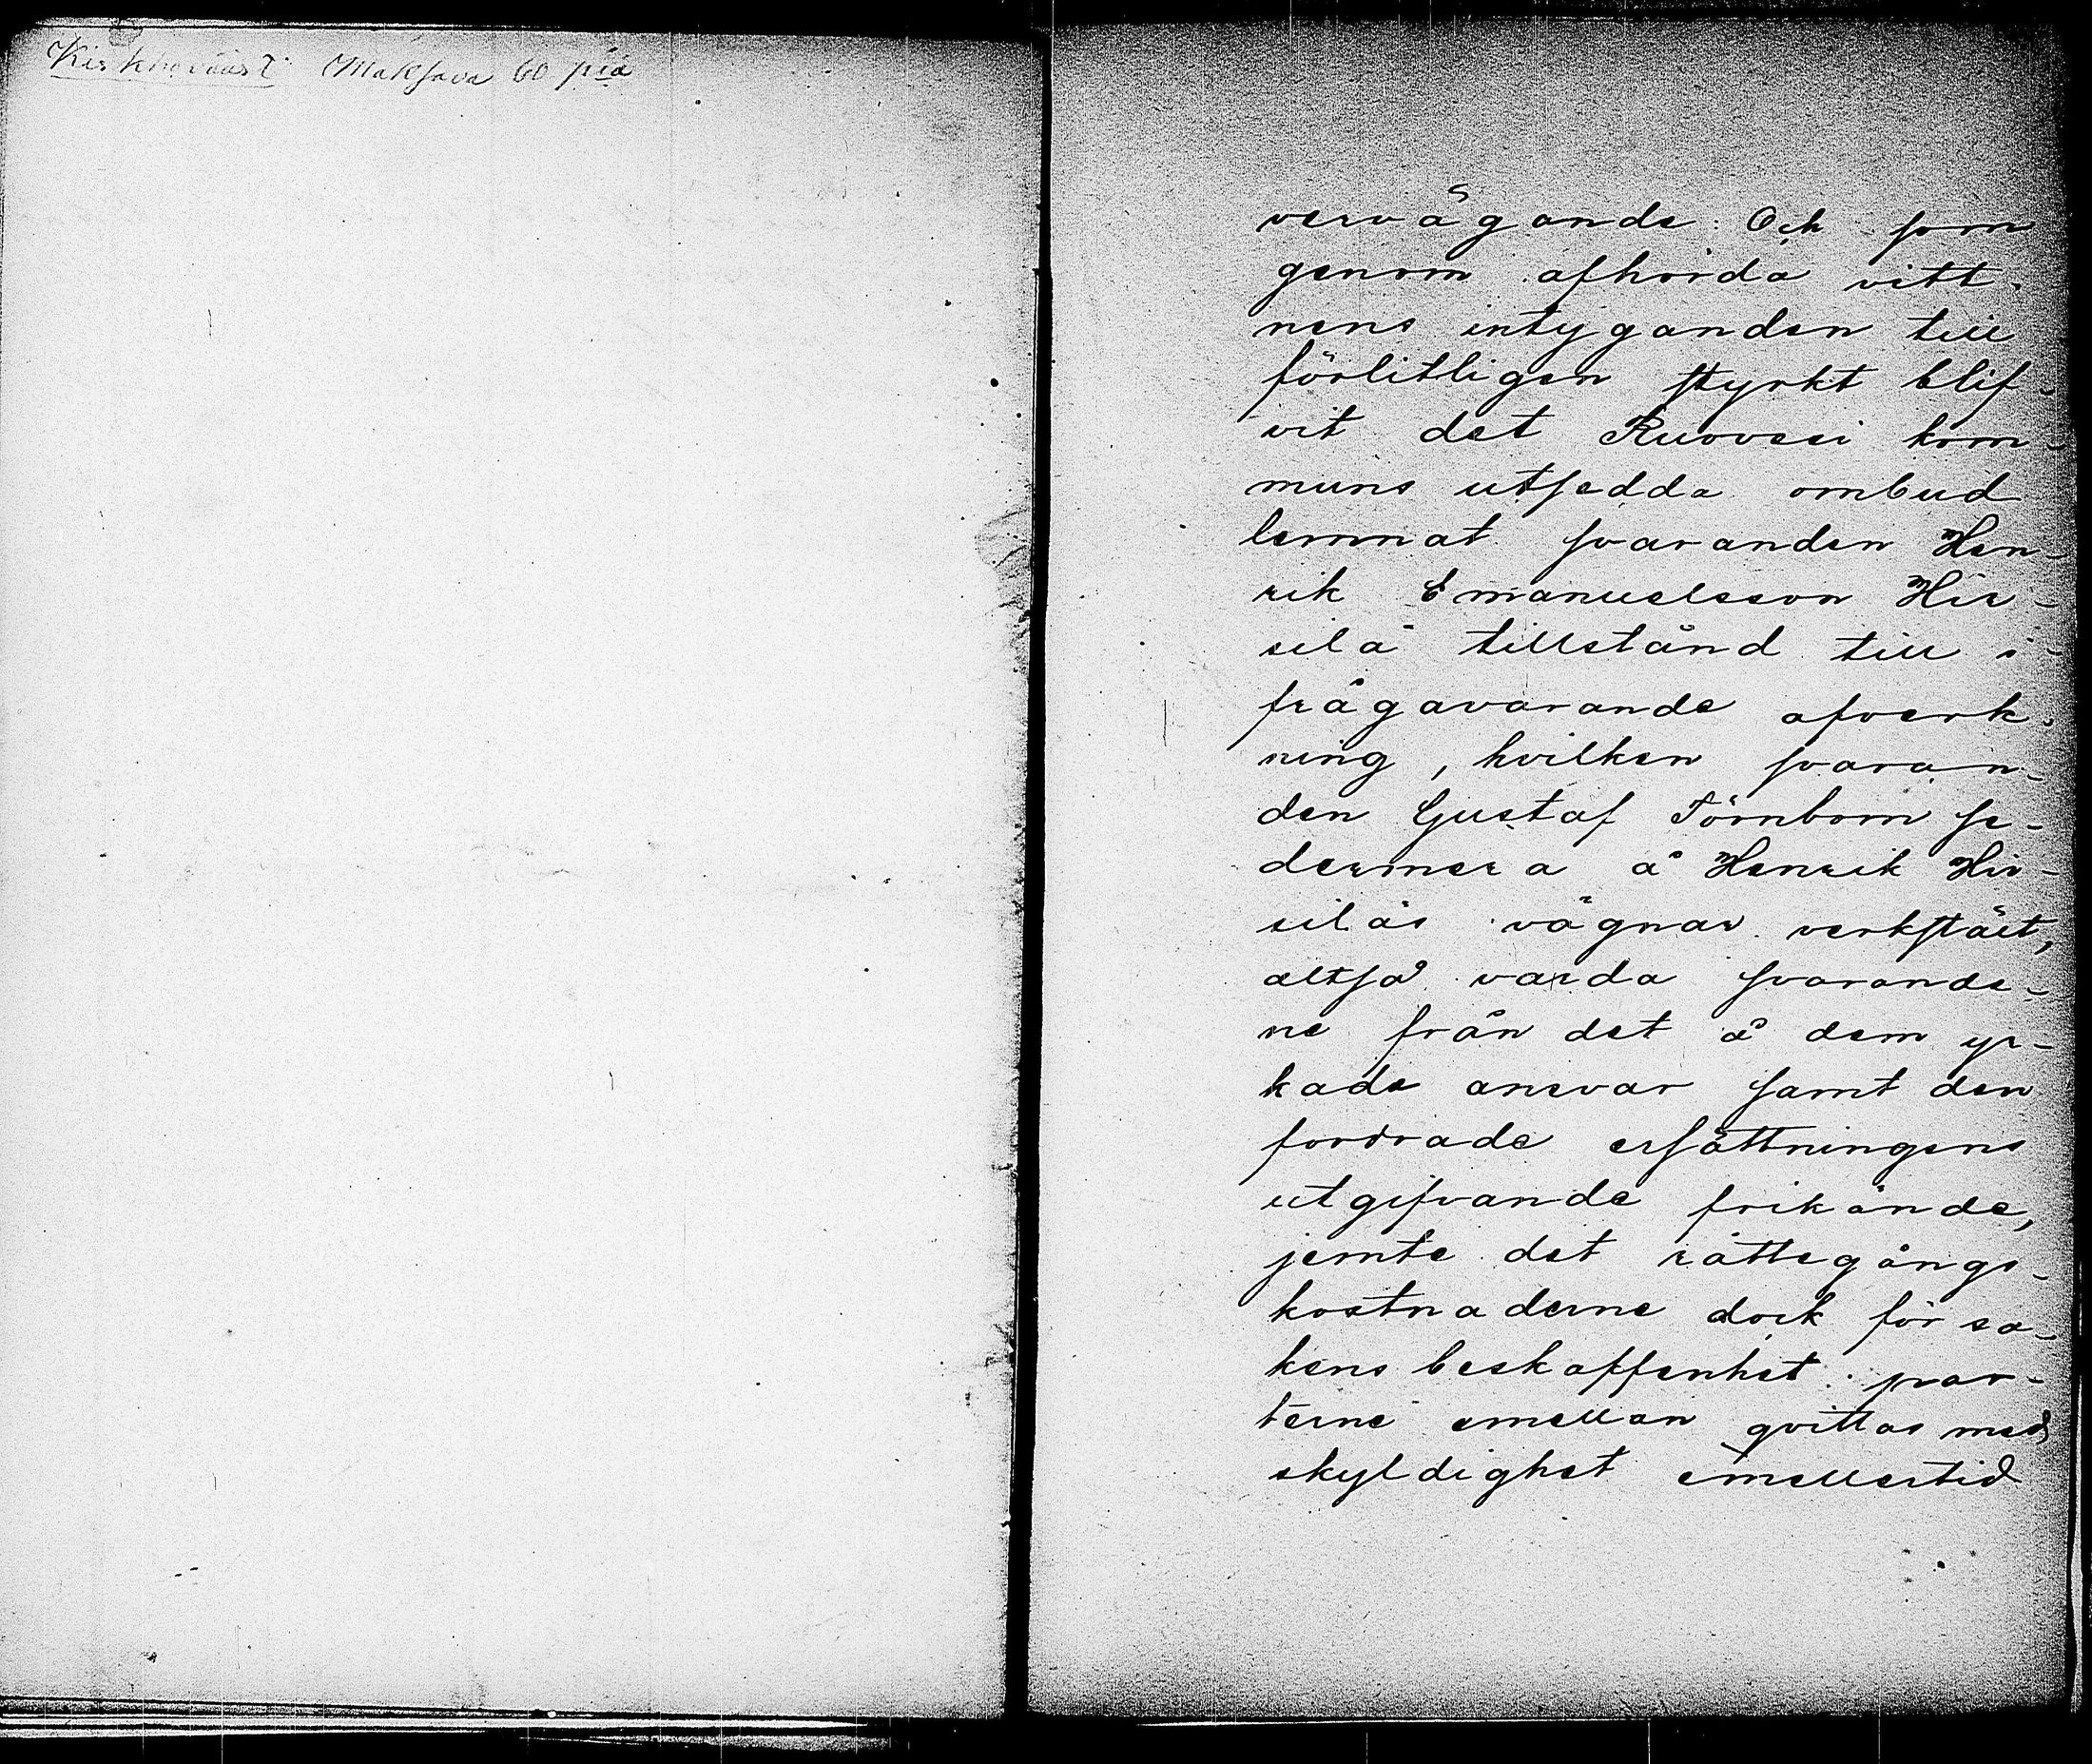 Maksava 60 piä
vervägande: Och som
genom afhörda vitt-
nens intyganden till
förlitligen styrkt blif-
vit det Ruovesi kom-
muns utsedda ombud
lemnat svaranden Hen-
rik Emanuelsson Hir-
silä tillstånd till i
frågavarande afverk-
ning, hvilken svaran-
den Gustaf Törnbom se-
dermera å Henrik Hir-
siläs vägnar verkstält,
altså varda svarande-
ne från det å dem yr-
kade ansvar samt den
fordrade ersättningens
utgifvande frikände,
jemte det rättegångs-
kostnaderne dock för sa-
kens beskaffenhet par-
terne emellan qvittas med
skyldighet emellertid